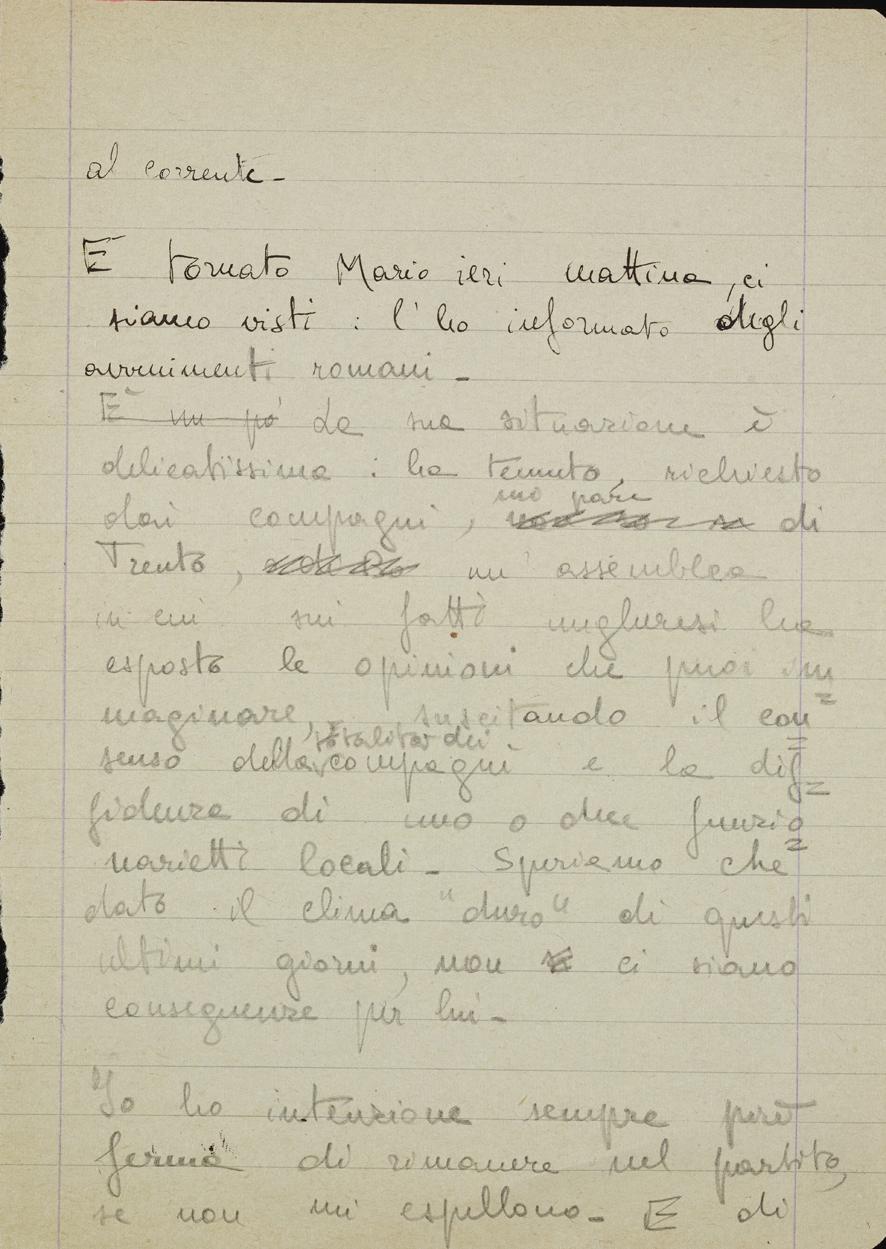 al corrente -
E tornato Mario ieri mattina, ci
siamo visti : l'ho informato degli
avvenimenti romani -
E' un po' La sua situazione è
delicatissima : ha tenuto, richiesto
mi pare
dai compagni, di
Trento, un' assemblea
in cui sui fatti ungheresi ha
esposto le opinioni che puoi im
maginare, suscitando il con=
totalità dei
senso della compagni e la dif=
fidenza di uno o due funzio=
narietti locali - Speriamo che
dato il clima "duro" di questi
ultimi giorni, non ci siano
conseguenze per lui -
Io ho intenzione sempre però
ferma di rimanere nel partito,
se non mi espellono - E di